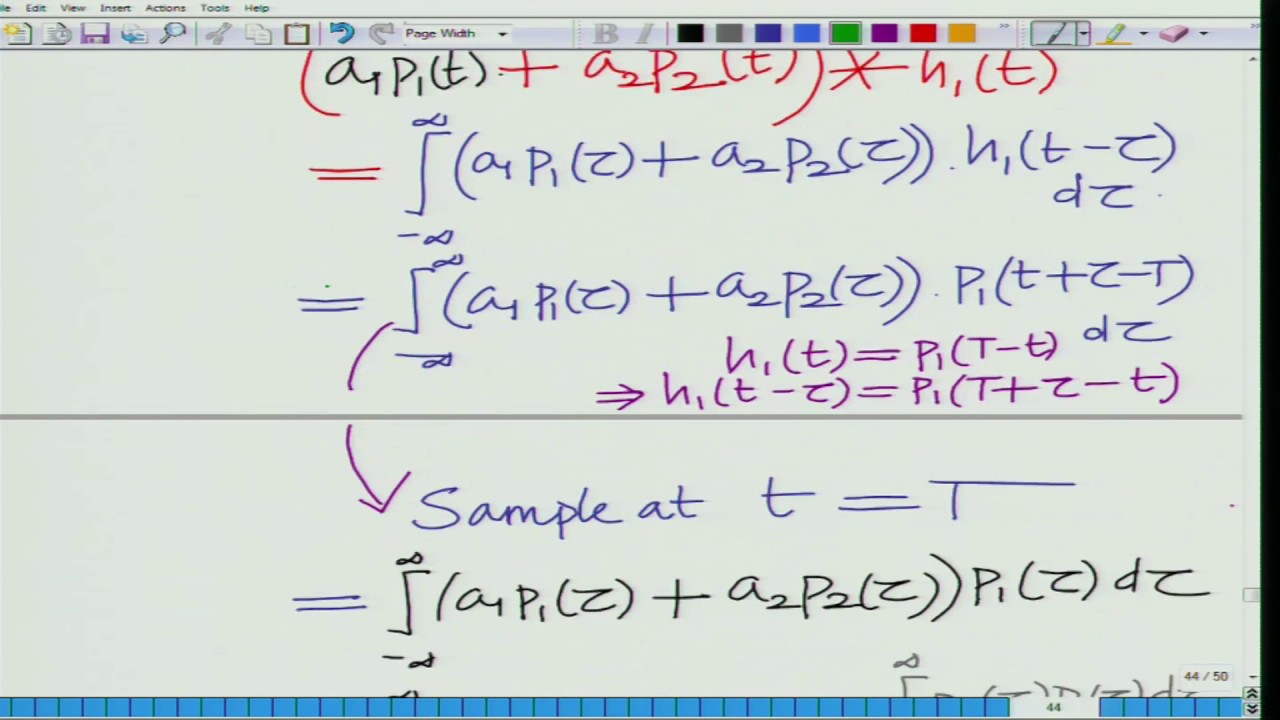 Edit View Insert Actions Tools Help
Page Width B I
(a1p1(t) + a2p2(t)) * h1(t)
= ∫ from -∞ to ∞ (a1p1(τ) + a2p2(τ)) . h1(t-τ)
dτ
= ∫ from -∞ to ∞ (a1p1(τ) + a2p2(τ)) . p1(t+τ-T)
dτ
h1(t) = p1(T-t)
⇒ h1(t-τ) = p1(T+τ-t)
Sample at t = T
= ∫ from -∞ to ∞ (a1p1(τ) + a2p2(τ)) p1(τ) dτ
44 / 50
44